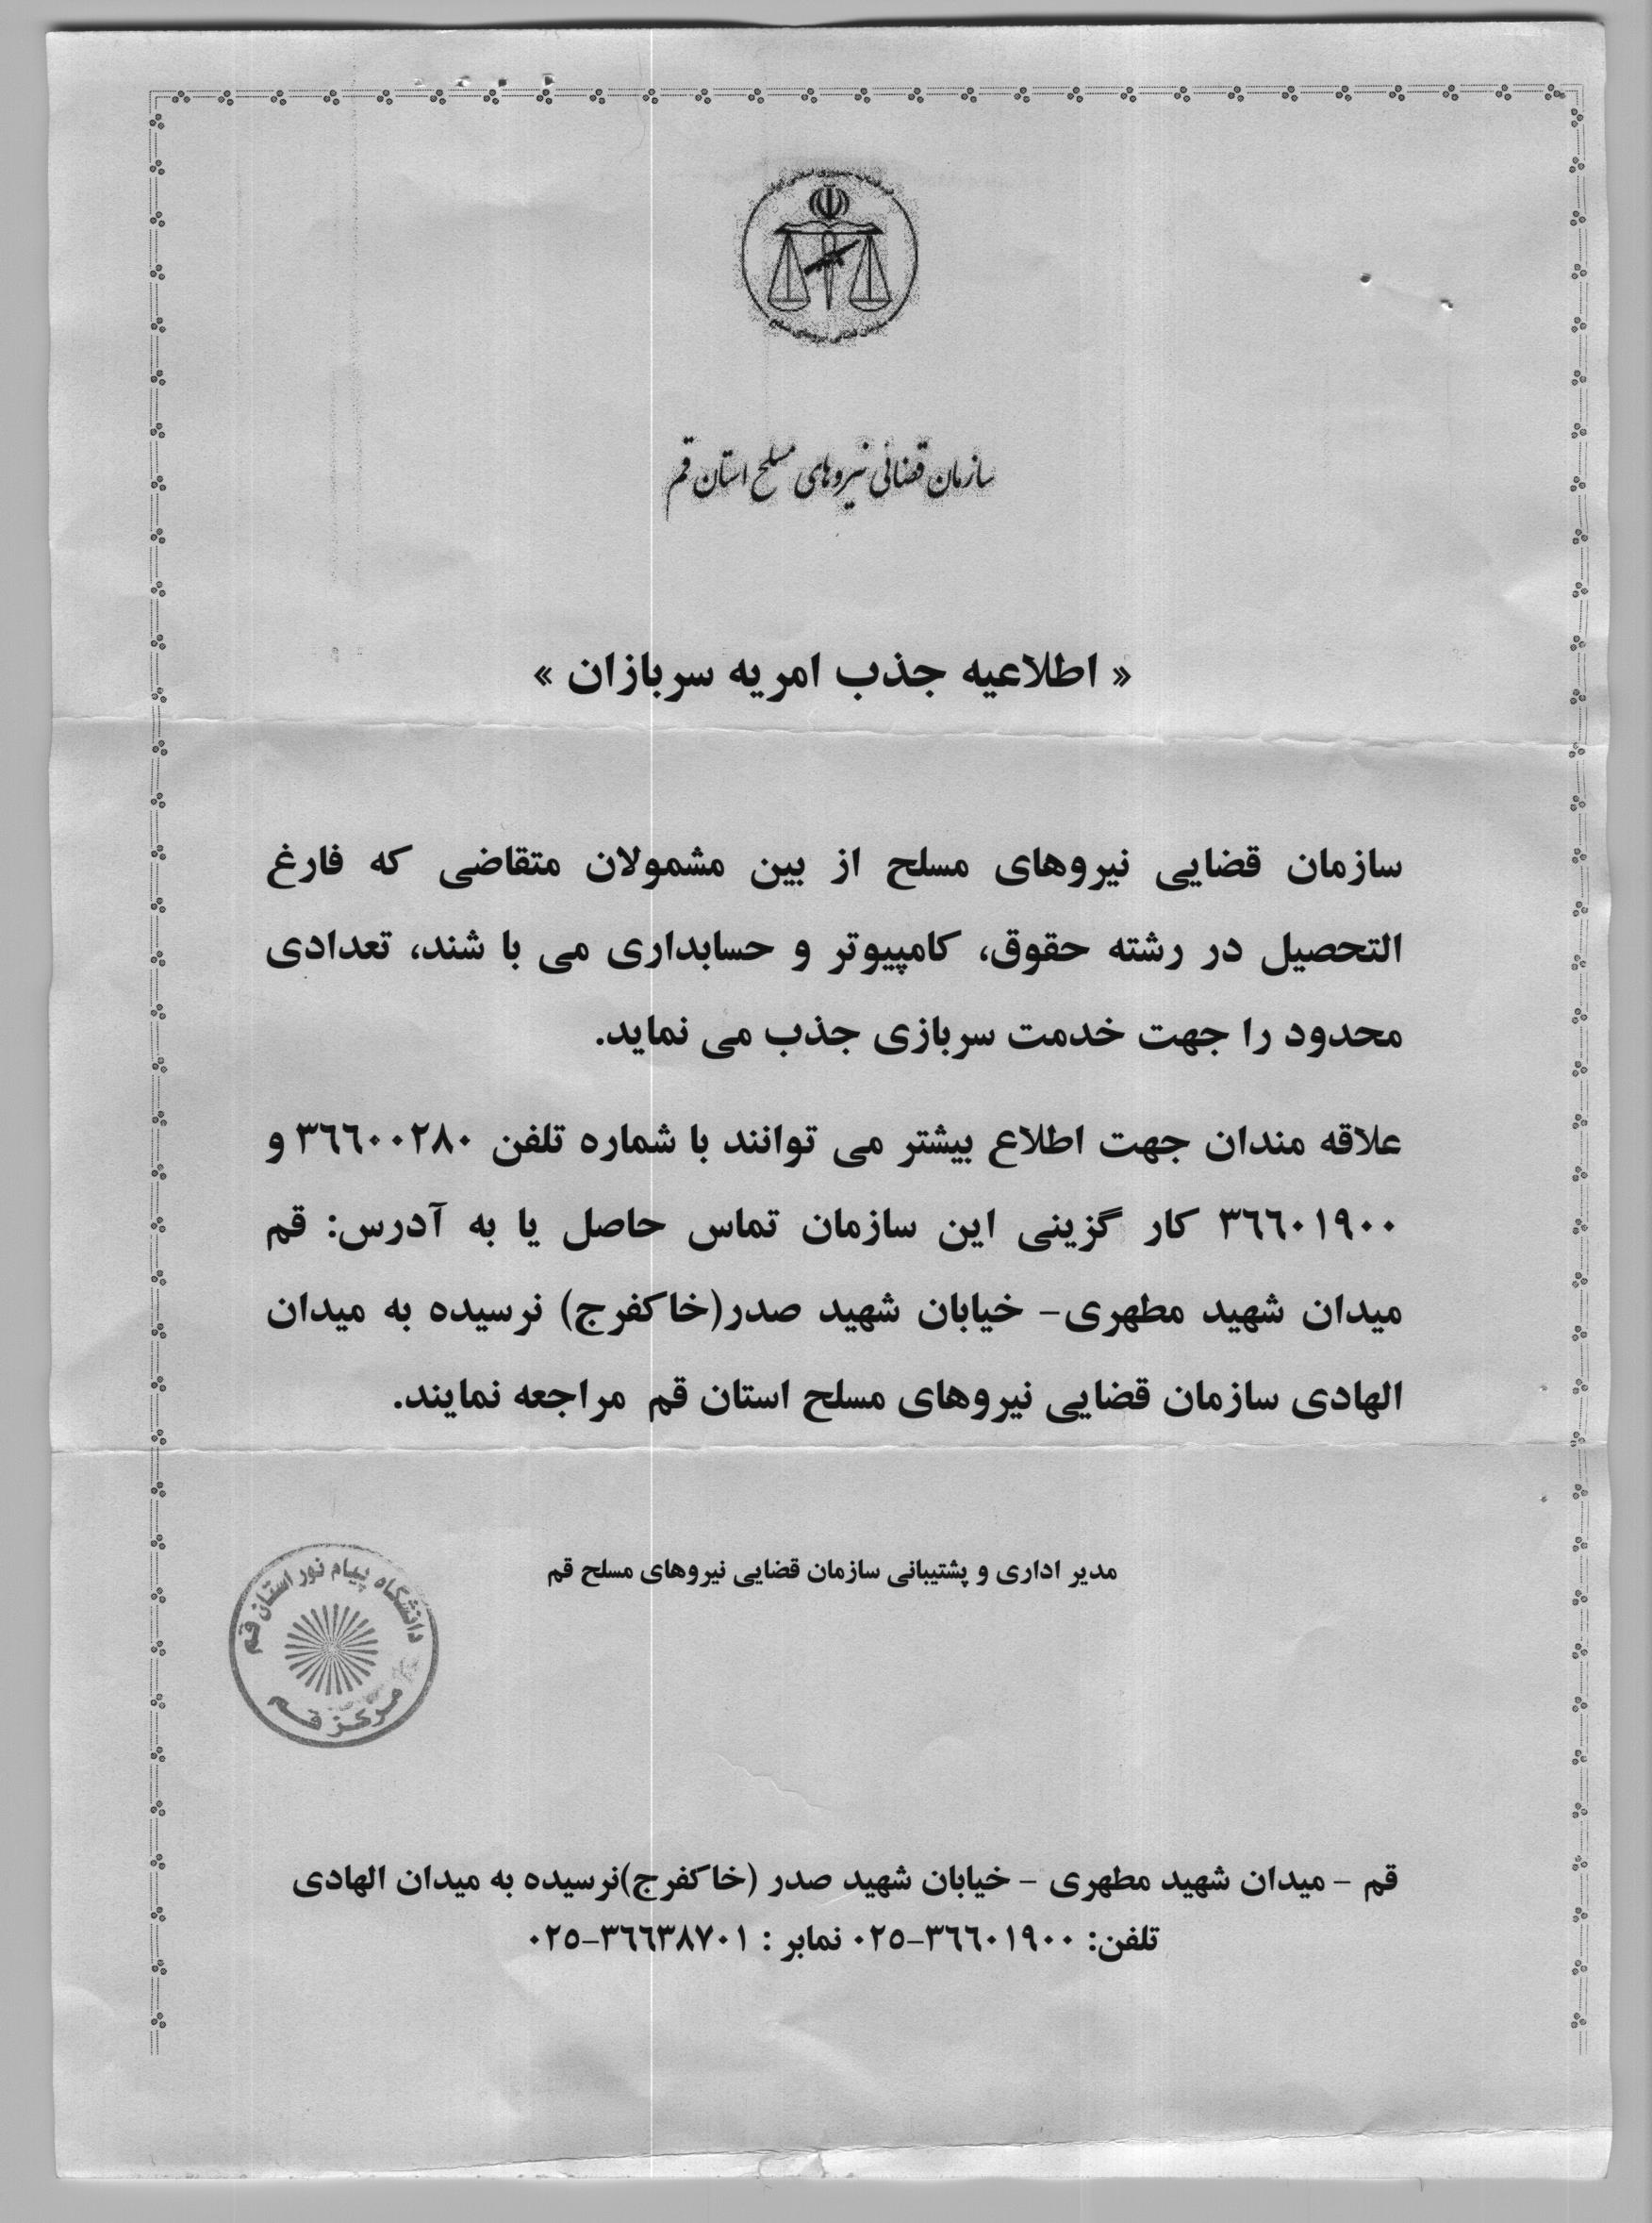 سازمان قضائی نیروهای مسلح استان قم
« اطلاعیه جذب امریه سربازان »
سازمان قضایی نیروهای مسلح از بین مشمولان متقاضی که فارغ
التحصیل در رشته حقوق، کامپیوتر و حسابداری می با شند، تعدادی
محدود را جهت خدمت سربازی جذب می نماید.
علاقه مندان جهت اطلاع بیشتر می توانند با شماره تلفن ۳۶۶۰۰۲۸۰ و
۳۶۶۰۱۹۰۰ کار گزینی این سازمان تماس حاصل یا به آدرس: قم
میدان شهید مطهری- خیابان شهید صدر(خاکفرج) نرسیده به میدان
الهادی سازمان قضایی نیروهای مسلح استان قم مراجعه نمایند.
مدیر اداری و پشتیبانی سازمان قضایی نیروهای مسلح قم
دانشگاه پیام نور استان قم
مرکز قم
قم - میدان شهید مطهری - خیابان شهید صدر (خاکفرج)نرسیده به میدان الهادی
تلفن: ۳۶۶۰۱۹۰۰-۰۲۵ نمابر : ۳۶۶۳۸۷۰۱-۰۲۵